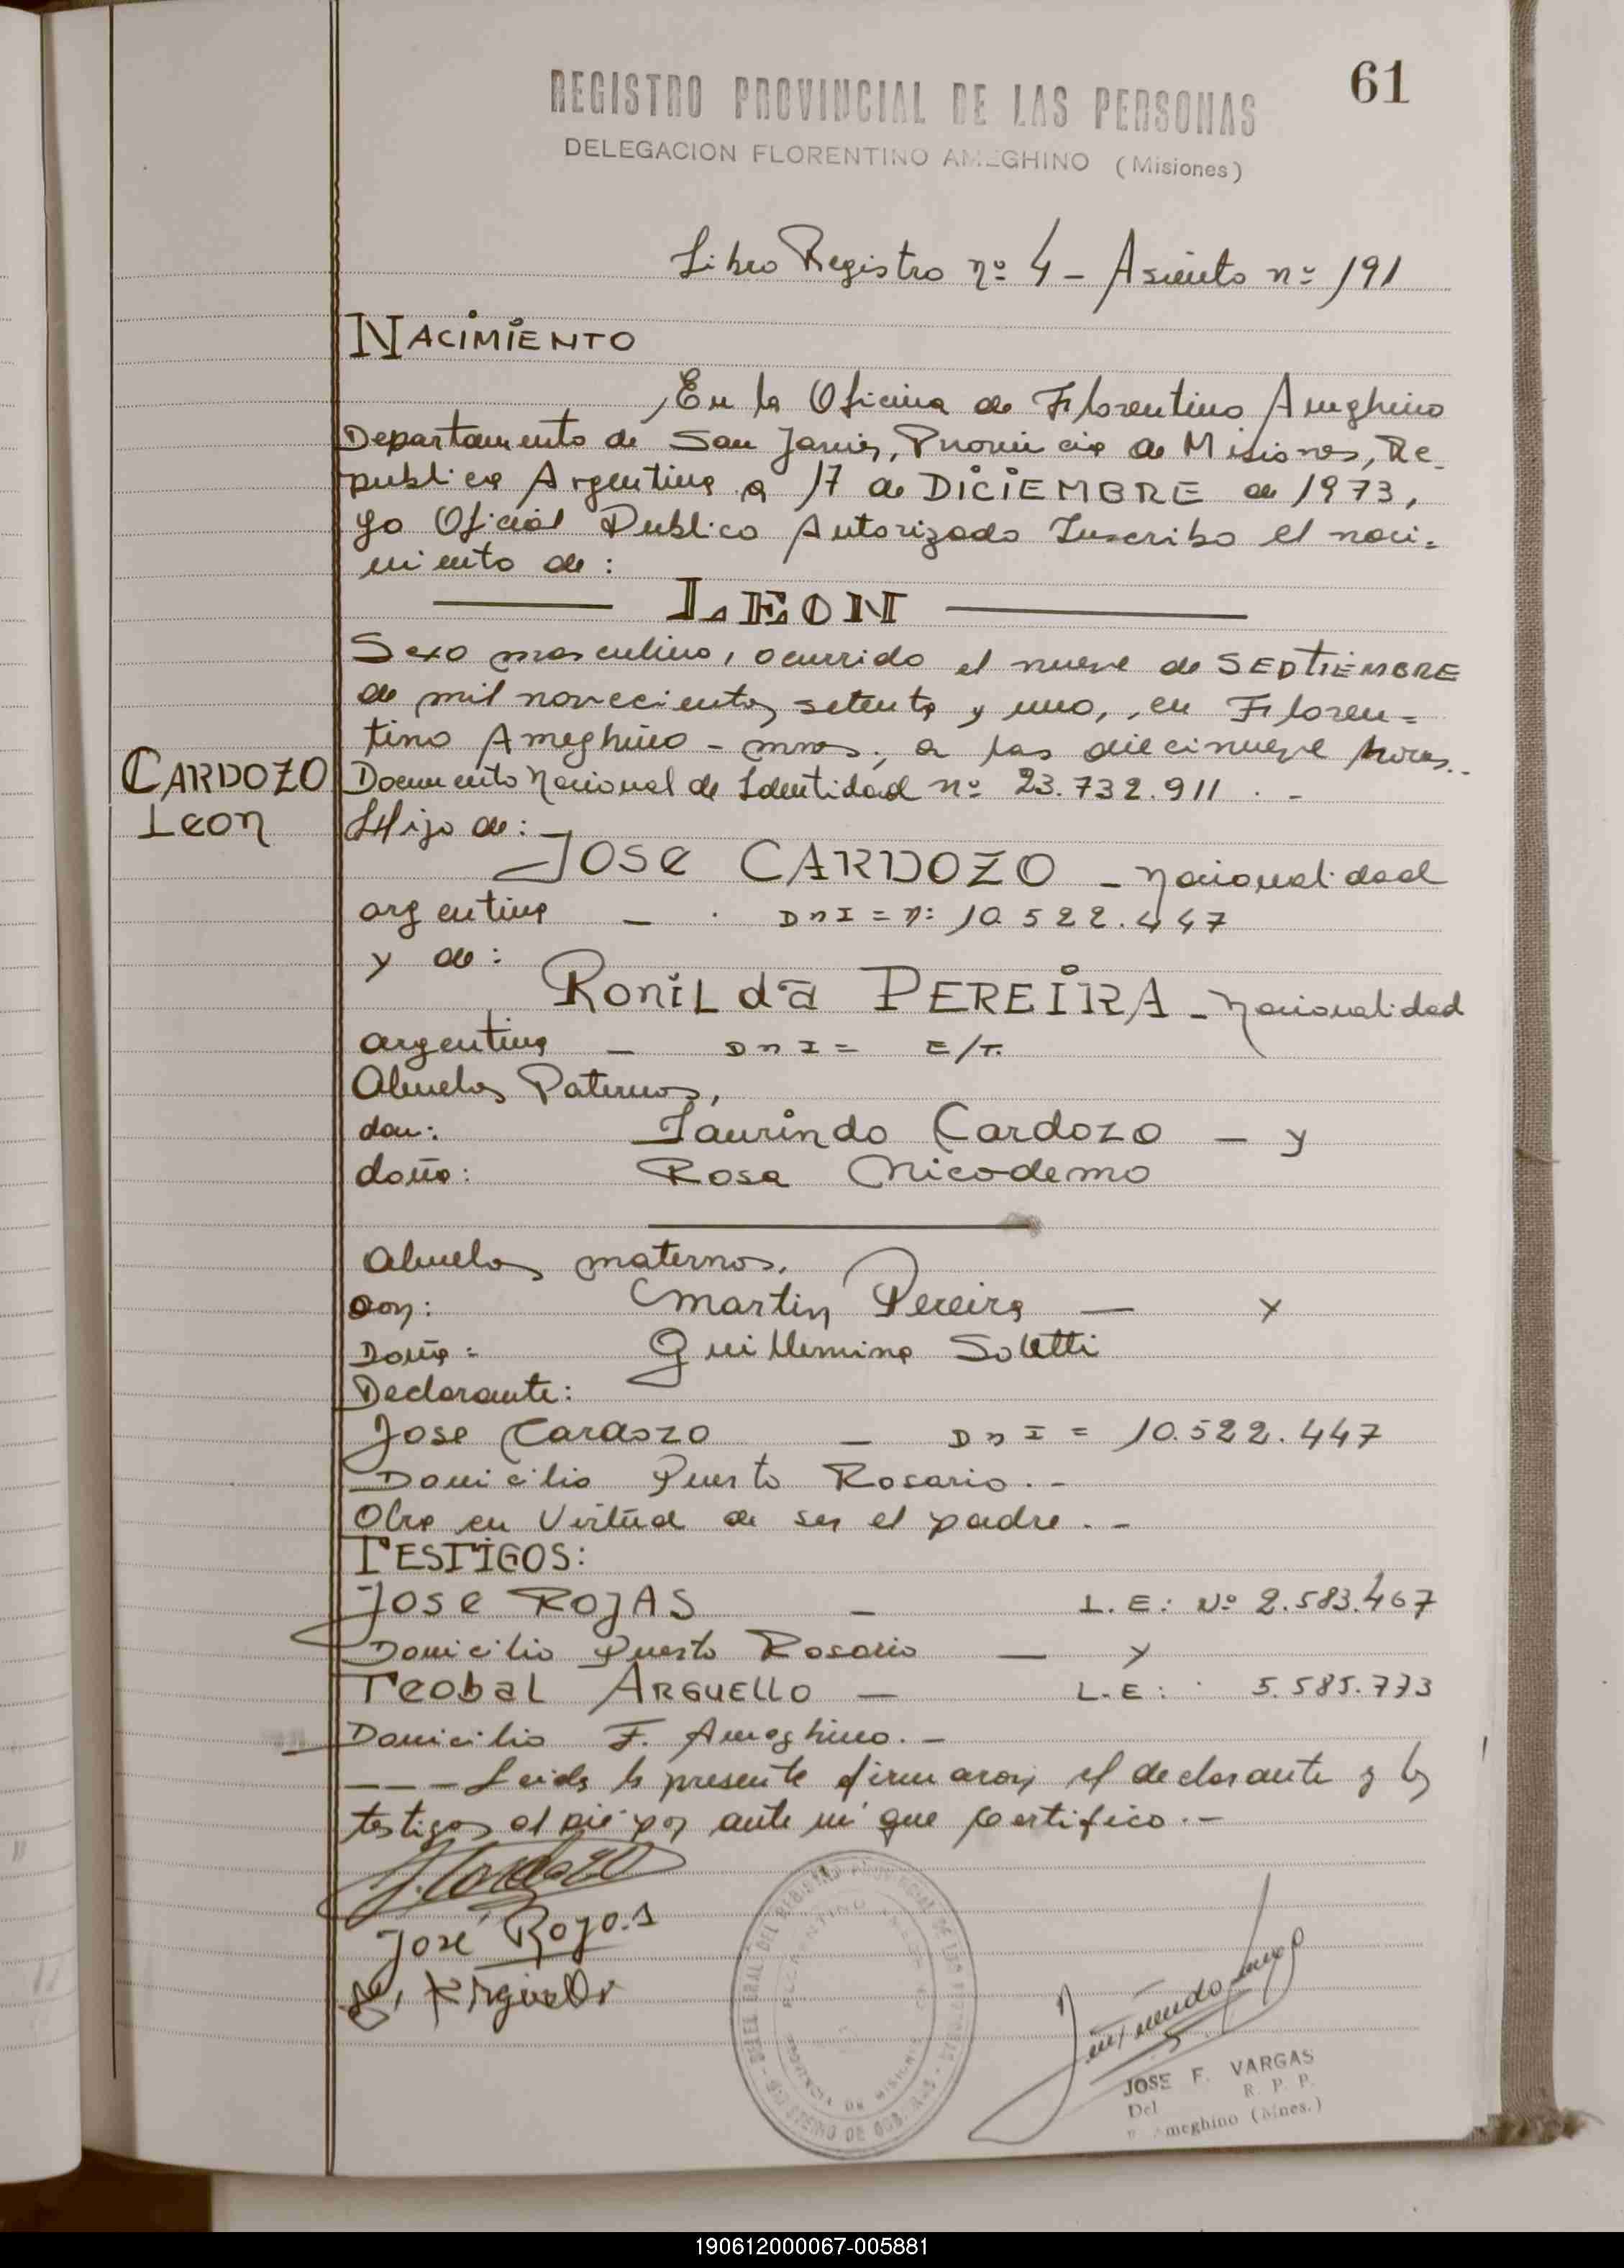 61
REGISTRO PROVINCIAL DE LAS PERSONAS
DELEGACION FLORENTINO AMEGHINO (Misiones)
Libro Registro nº 4 - Asiento nº 191
NACIMIENTO
En la Oficina de Florentino Ameghino
Departamento de San Javier, Provincia de Misiones, Re-
publica Argentina a 17 de DICIEMBRE de 1973,
yo Oficial Publico Autorizado Inscribo el naci-
miento de:
LEON
Sexo masculino, ocurrido el nueve de SEPTIEMBRE
de mil novecientos setenta y uno, en Floren=
tino Ameghino - mnes., a las diecinueve horas.-
CARDOZO
Leon
Documento Nacional de Identidad nº 23.732.911 . -
Hijo de: -
JOSE CARDOZO - nacionalidad
argentina - DNI = nº: 10.522.447
y de:
RONILda PEREIRA - nacionalidad
argentina - DNI = E/T.
Abuelos Paternos,
don: Laurindo Cardozo - y
doña: Rosa Nicodemo
Abuelos maternos.
Don: Martin Pereira - y
Doña: Guillermina Soletti
Declarante:
Jose Cardozo - DNI = 10.522.447
Domicilio Puerto Rosario. -
Obra en Virtud de ser el padre. -
TESTIGOS:
JOSE ROJAS - L.E: Nº 2.583.467
Domicilio Puerto Rosario - y
Teobal ARGUELLO - L.E: 5.585.773
Domicilio F. Ameghino. -
--- Leida la presente firmaron el declarante y los
testigos al pie por ante mi que Certifico. -
J. Cardozo
José Rojas
Arguello
JOSE F. VARGAS
Del R. P. P.
Ameghino (Mnes.)
190612000067-005881